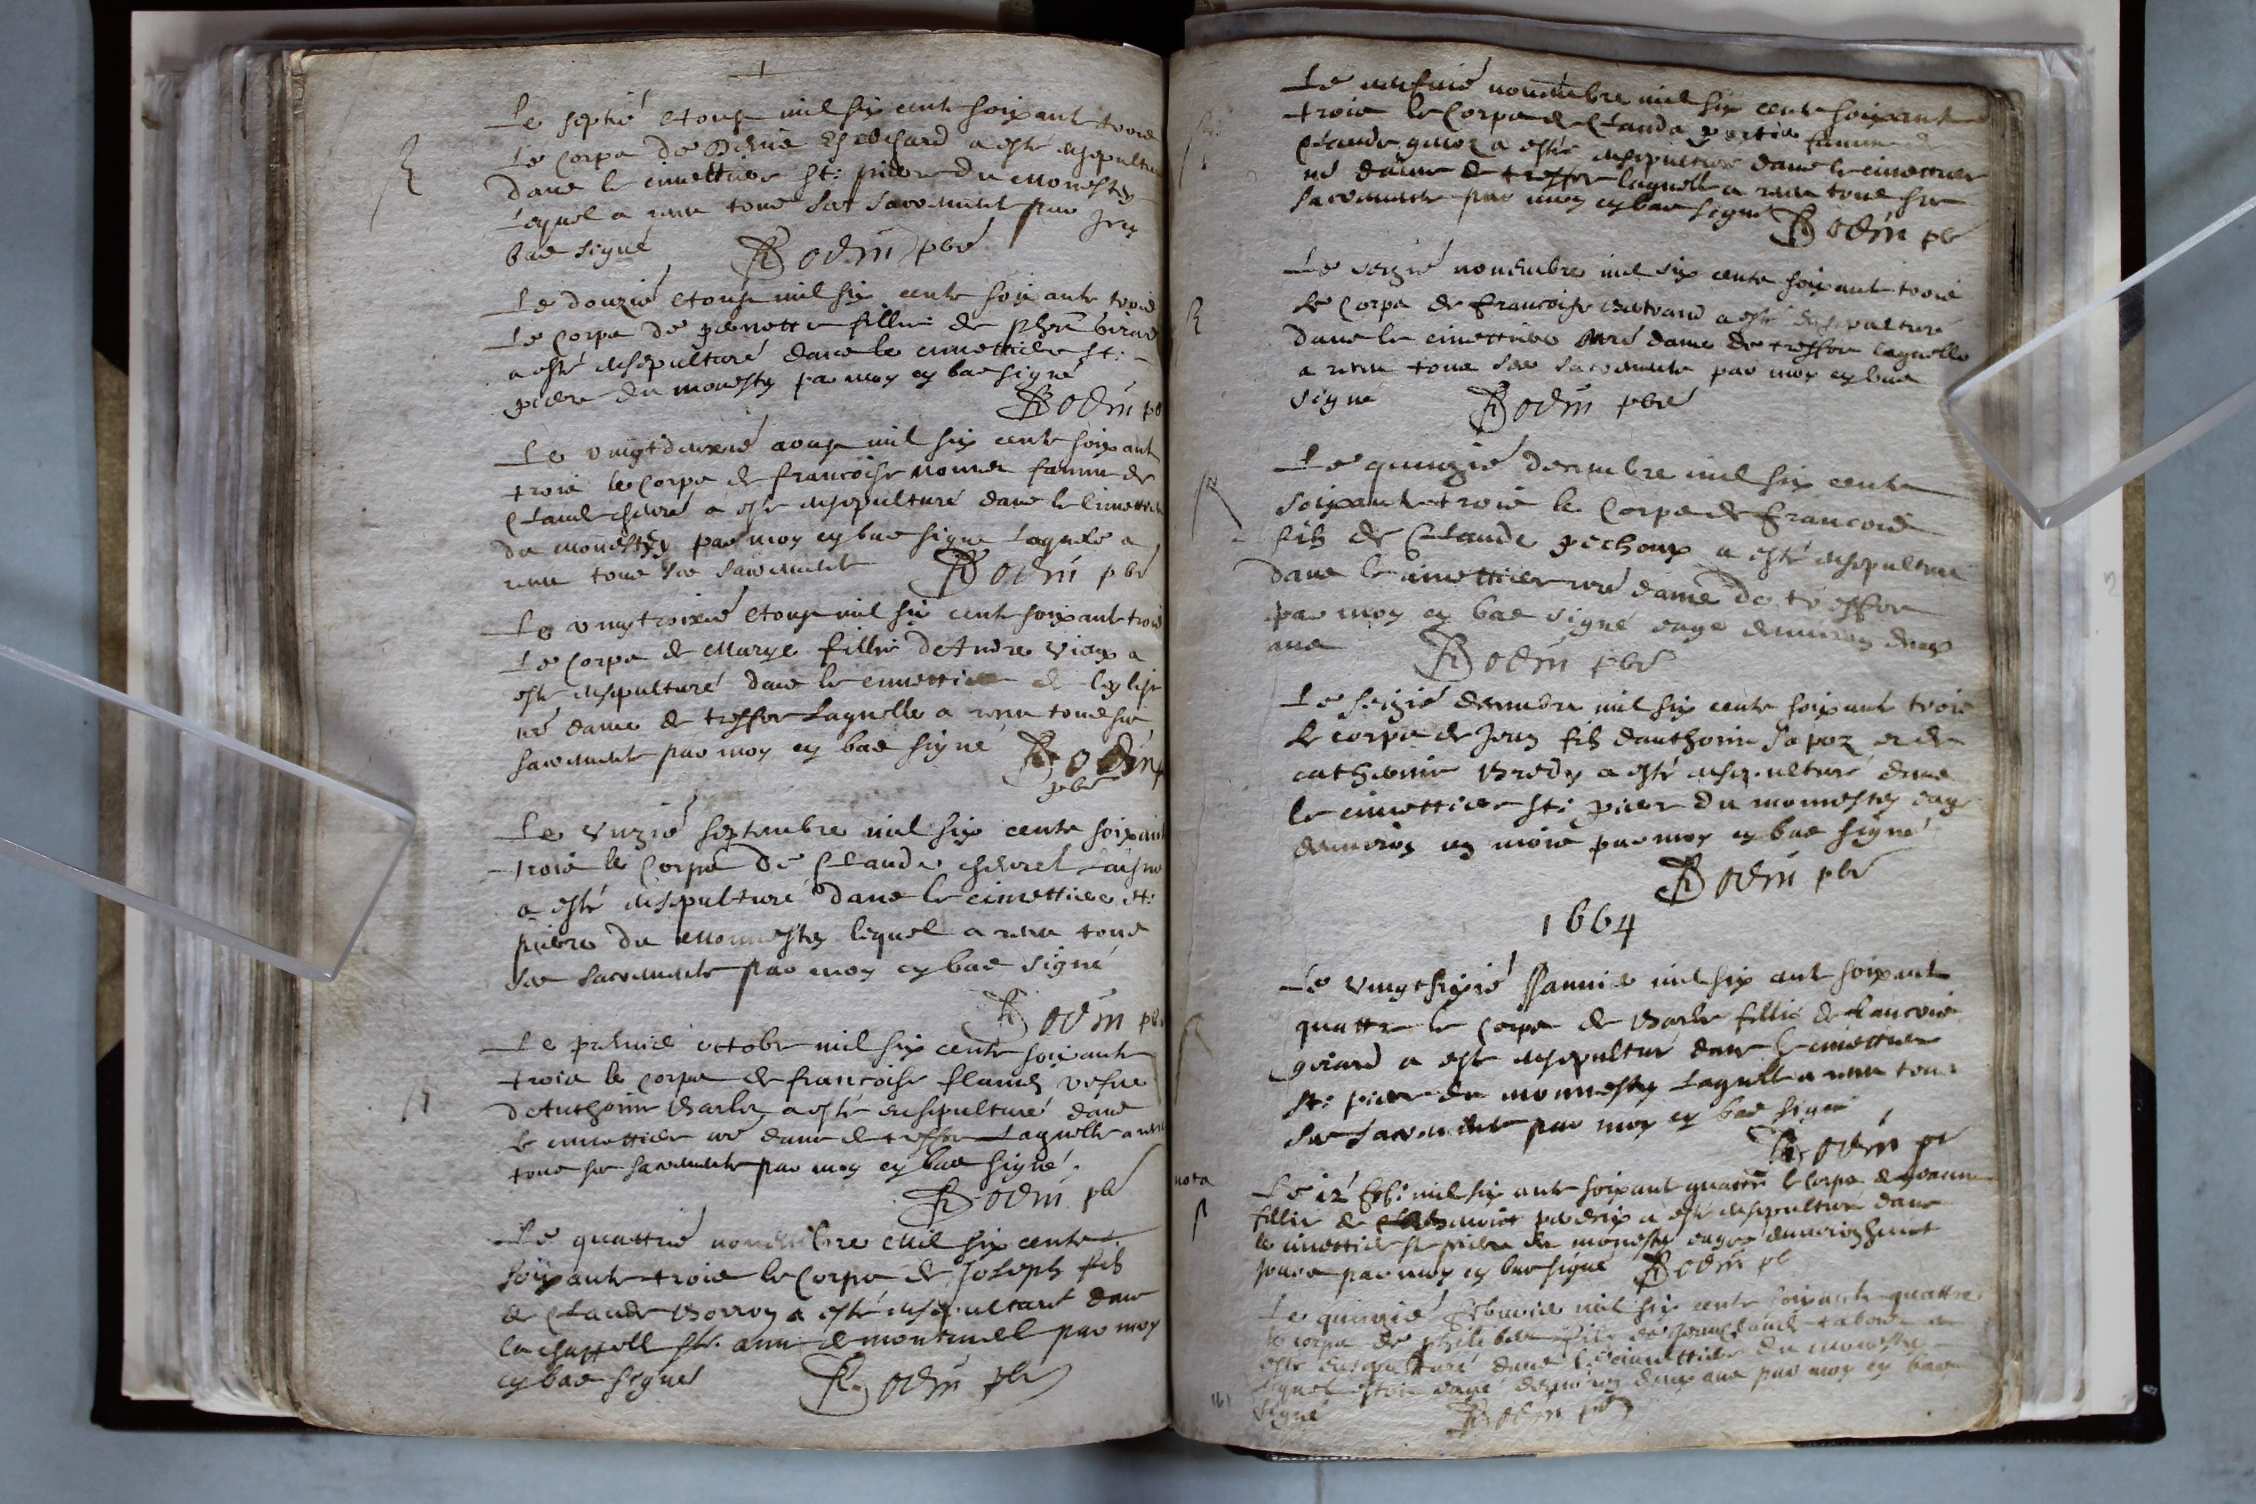 Le septié etoust mil six cent soixant trois
Le corps de a esté ensepulturé
dans le cimettiere st: piere du monestey
Lequel a receu tous ses sacrement par moy
bas signé Bodin pbré
Le douzié etoust mil six cents soixante trois
Le corps de pernette fillie de phért girard
a esté ensepulturé dans le cimettiere st:
piere du monestey par moy cy bas signé
Bodin pb
Le vingtdeuxié aoust mil six cents soixant
trois le corps de francoise famme de
Claude a esté ensepulturé dans le cimettiere
du monestey par moy cy bas signé Laquele a
receu tous ses sacrement Bodin pbr
Le vingtroixié etoust mil six cent soixant trois
Le corps de Marye fillie de Andre Vieux a
esté ensepulturé dans le cimettiere de leglise
nré dame de treffor Laquelle a receu tous ses
sacrement par moy cy bas signé Bodin
pbr
Le unzié septembre mil six cents soixant
trois le corps de Claude chevret laisné
a esté ensepulturé dans le cimettiere st:
piere du monnestey lequel a receu tous
ses sacrements par moy cy bas signé
Bodin pbr
Le premié octobre mil six cents soixante
trois le corps de francoise vefve
de Anthoine Barlez a esté ensepulturé dans
Le cimettier nré dame de treffor Laquelle a receu
tous ses sacrements par moy cy bas signé.
Bodin pbr
Le quattrié novembre Mil six cents
soixante trois le corps de Joseph fils
de Claude Borron a esté ensepulturé dans
la chappelle ste. anne de montcruel par moy
cy bas signes Bodin pbr
Le novembre mil six cents soixant
trois le corps de Clauda famme de
Claude a esté ensepulturé dans le cimettiere
nré dame de treffor laquelle a receu tous ses
sacrements par moy cy bas signé Bodin pb
Le seizié novembre mil six cents soixant trois
Le corps de francoise Bertrand a esté ensepulturé
dans le cimettiere nré dame de treffor laquelle
a receu tous ses sacrements par moy cy bas
signé Bodin pbré
Le quinzié decembre mil six cents
soixant trois le corps de francois
fils de Claude pechoux a esté ensepulturé
dans le cimettier nré dame de treffor
par moy cy bas signé eage denviron deux
ans Bodin pbr
Le seizié decembre mil six cents soixant trois
Le corps de Jean fils danthoine Sapoz et de
catherine Bredy a esté ensepulturé dans
le cimettier st: pier du monnestey eage
denviron un mois par moy cy bas signé
Bodin pbr
1664
Le vingtsixié Janvié mil six cent soixant
quattre le corps de Barbe fillie de francois
girard a esté ensepulturé dans le cimettier
st: pier du monnestey Laquelle a receu tous
ses sacrements par moy cy bas signé
Bodin pr
nota
Le 12 feb: mil six cents soixant quattre le corps de Jeanne
fillie de perdrix a esté ensepulturé dans
le cimettier st piere du monestey eagee denviron huict
jours par moy cy bas signé Bodin pb
Le quinzié febvrié mil six cents soixante quattre
le corps de philibert fils de a
esté ensepulturé dans le cimettier du monestey
Lequel estoit eagé denviron deux ans par moy cy bas
signé Bodin pb